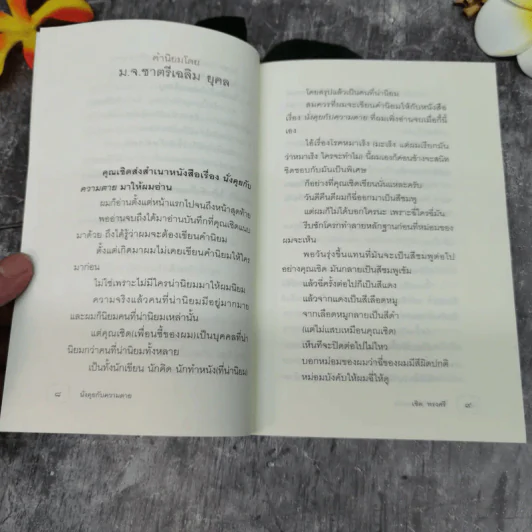 คำนิยมโดย
ม.จ.ชาตรีเฉลิม ยุคล
คุณเชิดส่งสำเนาหนังสือเรื่อง นั่งคุยกับ
ความตาย มาให้ผมอ่าน
ผมก็อ่านตั้งแต่หน้าแรกไปจนถึงหน้าสุดท้าย
พออ่านจบถึงได้มาอ่านบันทึกที่คุณเชิดแนบ
มาด้วย ถึงได้รู้ว่าผมจะต้องเขียนคำนิยม
ตั้งแต่เกิดมาผมไม่เคยเขียนคำนิยมให้ใคร
มาก่อน
ไม่ใช่เพราะไม่มีใครน่านิยมมาให้ผมนิยม
ความจริงแล้วคนที่น่านิยมมีอยู่มากมาย
และผมก็นิยมคนที่น่านิยมเหล่านั้น
แต่คุณเชิด(เพื่อนซี้ของผม)เป็นบุคคลที่น่า
นิยมกว่าคนที่น่านิยมทั้งหลาย
เป็นทั้งนักเขียน นักคิด นักทำหนัง(ที่น่านิยม)
๘ นั่งคุยกับความตาย
โดยสรุปแล้วเป็นคนที่น่านิยม
สมควรที่ผมจะเขียนคำนิยมให้กับหนังสือ
เรื่อง นั่งคุยกับความตาย ที่ผมเพิ่งอ่านจบเมื่อกี้นี้
เอง
ไอ้เรื่องโรคหมาเริง (มะเร็ง แต่ผมเรียกมัน
ว่าหมาเริง ใครจะทำไม) นี้ผมเองก็ค่อนข้างจะสนิท
ชิดชอบกับมันเป็นพิเศษ
ก็อย่างที่คุณเชิดเขียนนั่นแหละครับ
วันดีคืนดีผมก็ฉี่ออกมาเป็นสีชมพู
แต่ผมก็ไม่ได้บอกใครนะ เพราะฉี่ใครฉี่มัน
รีบชักโครกทำลายหลักฐานก่อนที่หม่อมของ
ผมจะเห็น
พอวันรุ่งขึ้นแทนที่มันจะเป็นสีชมพูต่อไป
อย่างคุณเชิด มันกลายเป็นสีชมพูเข้ม
แล้วฉี่ครั้งต่อไปก็เป็นสีแดง
แล้วจากแดงเป็นสีเลือดหมู
จากเลือดหมูกลายเป็นสีดำ
(แต่ไม่แสบเหมือนคุณเชิด)
เห็นที่จะปิดต่อไปไม่ไหว
บอกหม่อมของผมว่าฉี่ของผมมีสีผิดปกติ
หม่อมบังคับให้ผมฉี่ให้ดู
เชิด ทรงศรี ๙